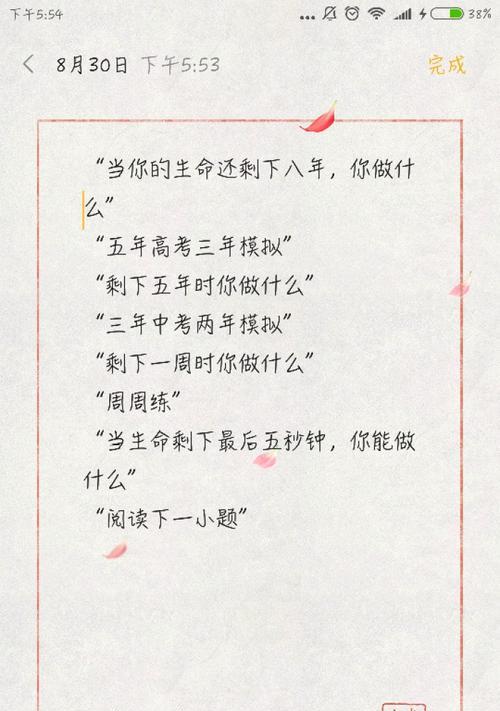 下午5:54
38%
8月30日 下午5:53
完成
“当你的生命还剩下八年，你做什
么”
“五年高考三年模拟”
“剩下五年时你做什么”
“三年中考两年模拟”
“剩下一周时你做什么”
“周周练”
“当生命剩下最后五秒钟，你能做
什么”
“阅读下一小题”